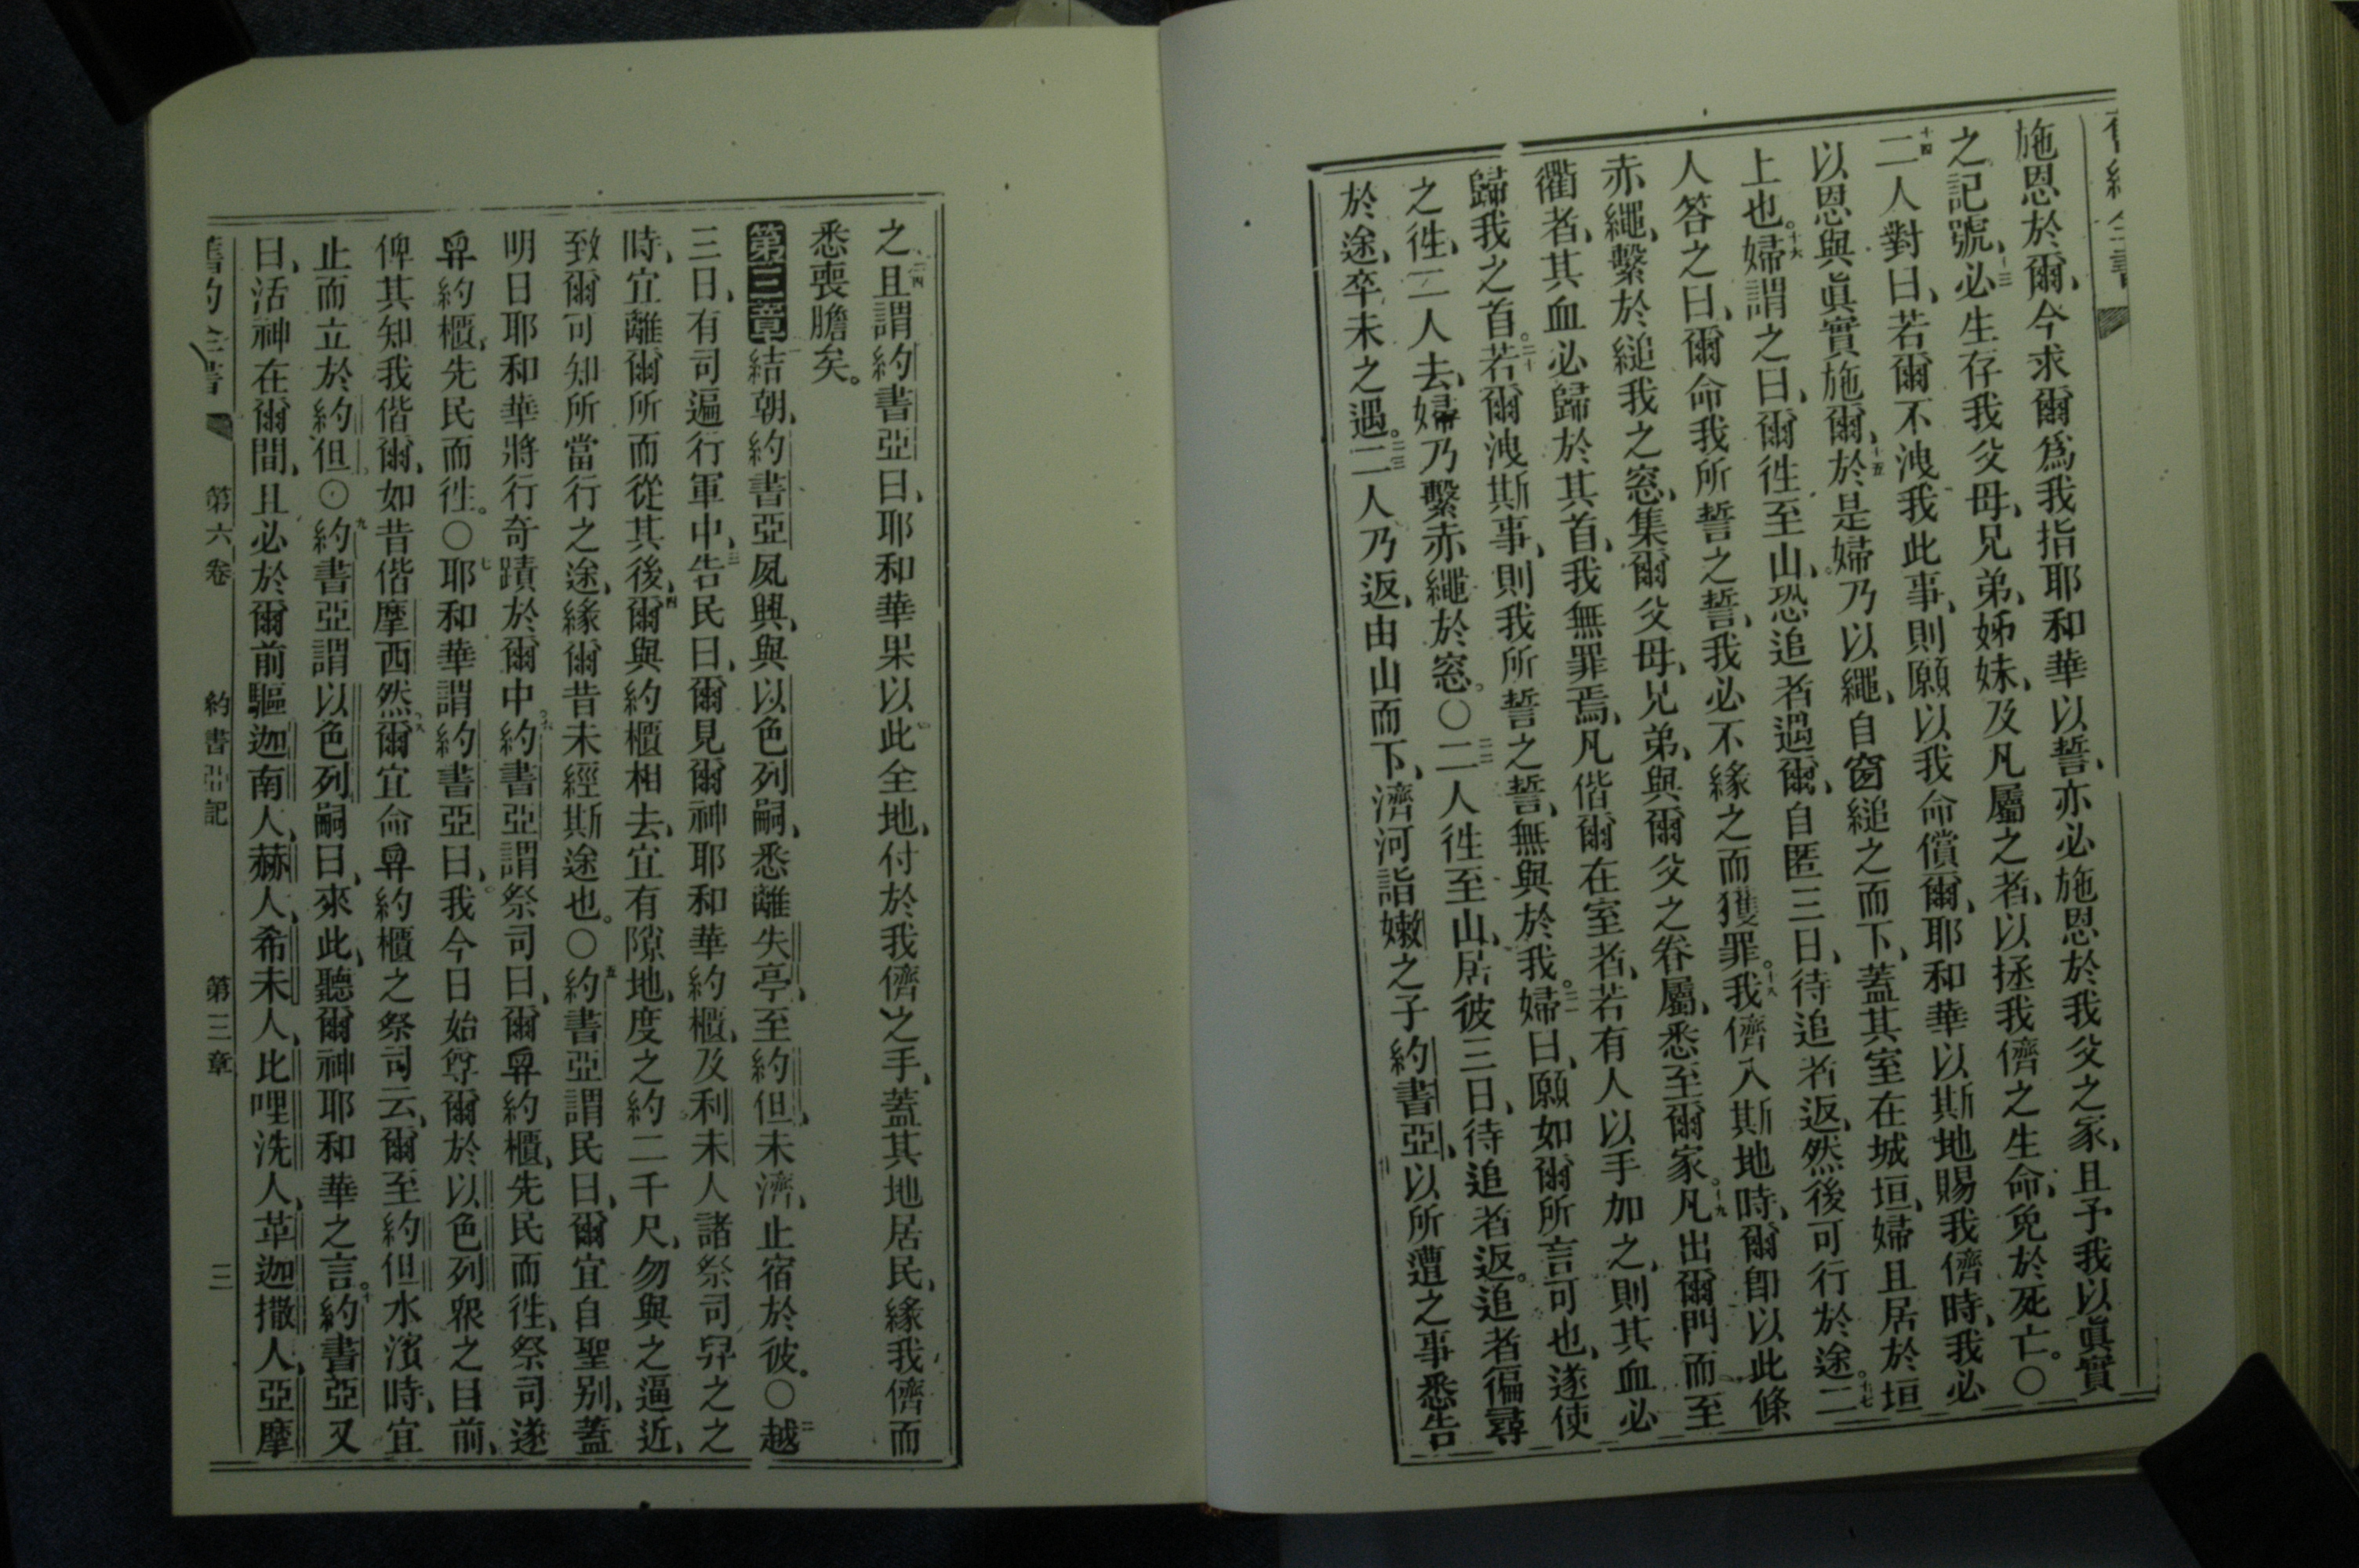 施恩於爾、今求爾爲我指耶和華以誓、亦必施恩於我父之家、且予我以眞實
之記號、十三必生存我父母、兄弟、姊妹、及凡屬之者、以拯我儕之生命、免於死亡。〇
十四二人對曰、若爾不洩我此事、則願以我命償爾、耶和華以斯地賜我儕時、我必
以恩與眞實施爾、十五於是婦乃以繩、自窗縋之而下、蓋其室在城垣、婦且居於垣
上也。十六婦謂之曰、爾徃至山、恐追者遇爾、自匿三日、待追者返、然後可行於途。十七二
人答之曰、爾命我所誓之誓、我必不緣之而獲罪。十八我儕入斯地時、爾卽以此條
赤繩、繫於縋我之窓、集爾父母、兄弟、與爾父之眷屬、悉至爾家。十九凡出爾門而至
衢者、其血必歸於其首、我無罪焉、凡偕爾在室者、若有人以手加之、則其血必
歸我之首。二十若爾洩斯事、則我所誓之誓、無與於我。二一婦曰、願如爾所言可也、遂使
之徃、二人去、婦乃繫赤繩於窓。〇二二二人徃至山、居彼三日、待追者返。追者徧尋
於途、卒未之遇。二三二人乃返、由山而下、濟河詣嫩之子約書亞、以所遭之事悉告
之、二四且謂約書亞曰、耶和華果以此全地、付於我儕之手、蓋其地居民、緣我儕而
悉喪膽矣。
第三章 一結朝、約書亞夙興、與以色列嗣、悉離失亭、至約但、未濟、止宿於彼。〇二越
三日、有司遍行軍中、三告民曰、爾見爾神耶和華約櫃、及利未人諸祭司舁之之
時、宜離爾所而從其後、四爾與約櫃相去、宜有隙地、度之約二千尺、勿與之逼近、
致爾可知所當行之途、緣爾昔未經斯途也。〇五約書亞謂民曰、爾宜自聖别、蓋
明日耶和華將行奇蹟於爾中。六約書亞謂祭司曰、爾舁約櫃、先民而徃、祭司遂
舁約櫃、先民而徃。〇七耶和華謂約書亞曰、我今日始尊爾於以色列衆之目前、
俾其知我偕爾、如昔偕摩西然、八爾宜命舁約櫃之祭司云、爾至約但水濱時、宜
止而立於約但。〇九約書亞謂以色列嗣曰、來此、聽爾神耶和華之言。十約書亞又
曰、活神在爾間、且必於爾前驅迦南人、赫人、希未人、比哩洗人、革迦撒人、亞摩
舊約全書 第六卷 約書亞記 第三章 三